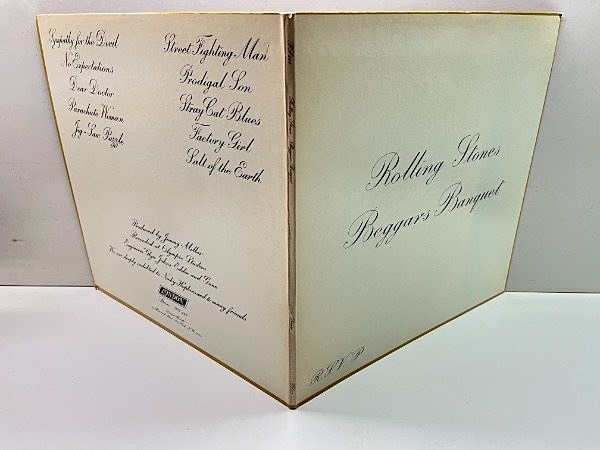 Sympathy for the Devil
No Expectations
Dear Doctor
Parachute Woman
Jig-Saw Puzzle
Street Fighting Man
Prodigal Son
Stray Cat Blues
Factory Girl
Salt of the Earth
Produced by Jimmy Miller
Recorded at Olympic Studios
Engineers Glyn Johns, Eddie and Gene
We are deeply indebted to Nicky Hopkins and to many friends
LONDON
Rolling Stones
Beggars Banquet
R.S.V.P.